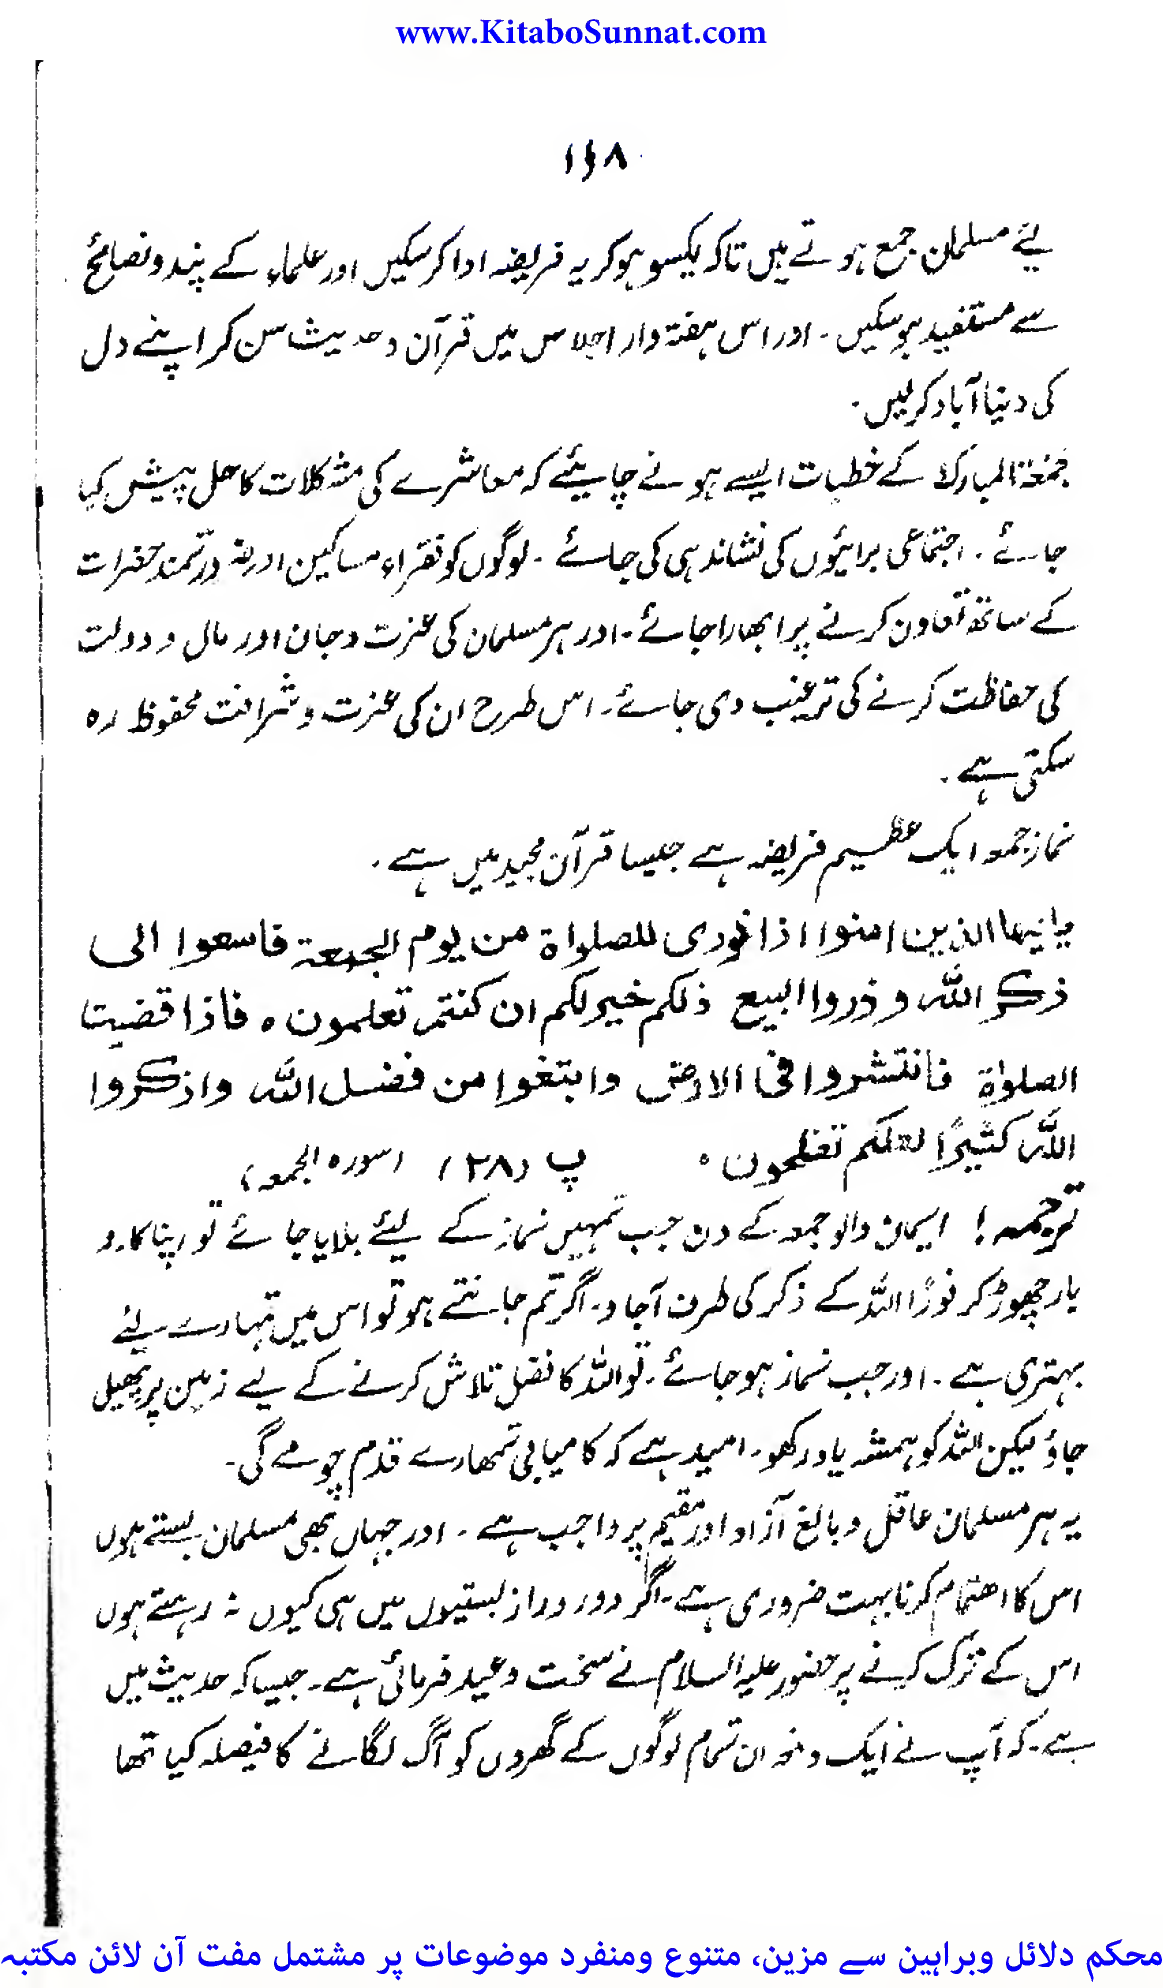 www.KitaboSunnat.com
لئے مسلمان جمع ہوتے ہیں تاکہ یکسو ہوکر یہ فریضہ ادا کرسکیں اور علماء کے پندونصائح
سے مستفید ہوسکیں ۔ اور اس ہفتہ وار اجلاس میں قرآن وحدیث سن کر اپنے دل
کی دنیا آباد کرلیں ۔
جمعۃ المبارک کے خطبات ایسے ہونے چاہیئے کہ معاشرے کی مشکلات کا حل پیش کیا
جائے ۔ اجتماعی برائیوں کی نشاندہی کی جائے ۔ لوگوں کو فقراء مساکین اور ضرورتمند حضرات
کے ساتھ تعاون کرنے پر ابھارا جائے ۔ اور ہر مسلمان کی عزت وجان اور مال و دولت
کی حفاظت کرنے کی ترغیب دی جائے ۔ اس طرح ان کی عزت وشرافت محفوظ رہ
سکتی ہے ۔
نماز جمعہ ایک عظیم فریضہ ہے جیسا قرآن مجید میں ہے ۔
یایہا الذین امنوا اذا نودی للصلواۃ من یوم الجمعۃ فاسعوا الی
ذکر اللہ و ذروا البیع ذلکم خیر لکم ان کنتم تعلمون ہ فاذا قضیت
الصلواۃ فانتشروا فی الارض وابتغوا من فضل اللہ واذکروا
اللہ کثیرًا لعلکم تفلحون ہ پ (۲۸) (سورہ الجمعہ)
ترجمہ! ایمان والو جمعہ کے دن جب تمہیں نماز کے لیئے بلایا جائے تو اپنا کارو
بار چھوڑ کر فورًا اللہ کے ذکر کی طرف آجاو ۔ اگر تم جانتے ہو تو اس میں تمہارے لیئے
بہتری ہے ۔ اور جب نماز ہوجائے ۔ تو اللہ کا فضل تلاش کرنے کے لیے زمین پر پھیل
جاؤ لیکن اللہ کو ہمشہ یاد رکھو ۔ امید ہے کہ کامیابی تمھارے قدم چومے گی ۔
یہ ہر مسلمان عاقل وبالغ آزاد اور مقیم پر واجب ہے ۔ اور جہاں بھی مسلمان بستے ہوں
اس کا اھتمام کرنا بہت ضروری ہے ۔ اگر دور دراز بستیوں میں ہی کیوں نہ رہتے ہوں
اس کے ترک کرنے پر حضور علیہ السلام نے سخت وعید فرمائی ہے ۔ جیسا کہ حدیث میں
ہے ۔ کہ آپ نے ایک دفعہ ان تمام لوگوں کے گھروں کو آگ لگانے کا فیصلہ کیا تھا
محکم دلائل وبراہین سے مزین، متنوع ومنفرد موضوعات پر مشتمل مفت آن لائن مکتبہ